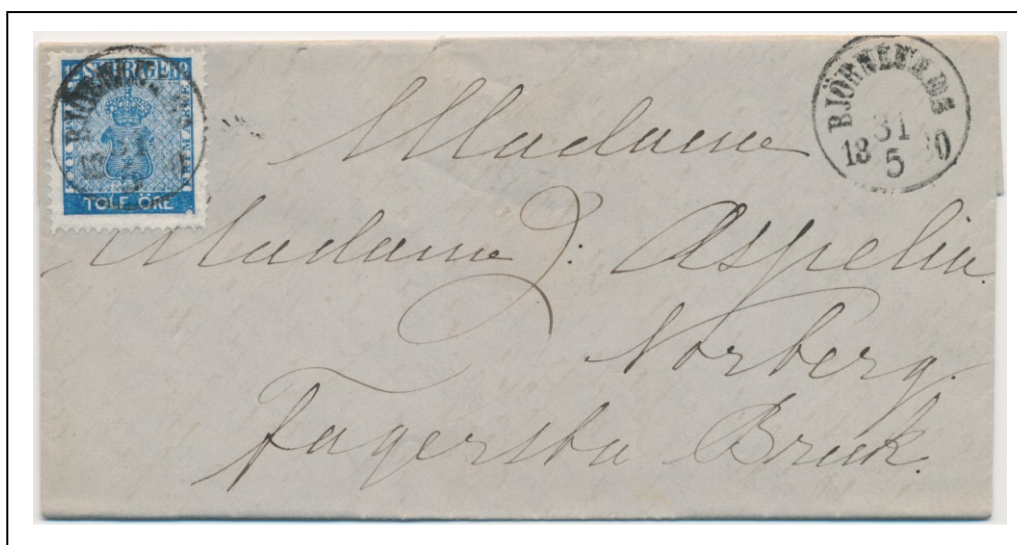 SVERIGE
TOLF ÖRE
BJÖRNEBORG
31
18 60
5
Madame
Madame J: Aspelin.
Norberg.
Fagersta Bruk.